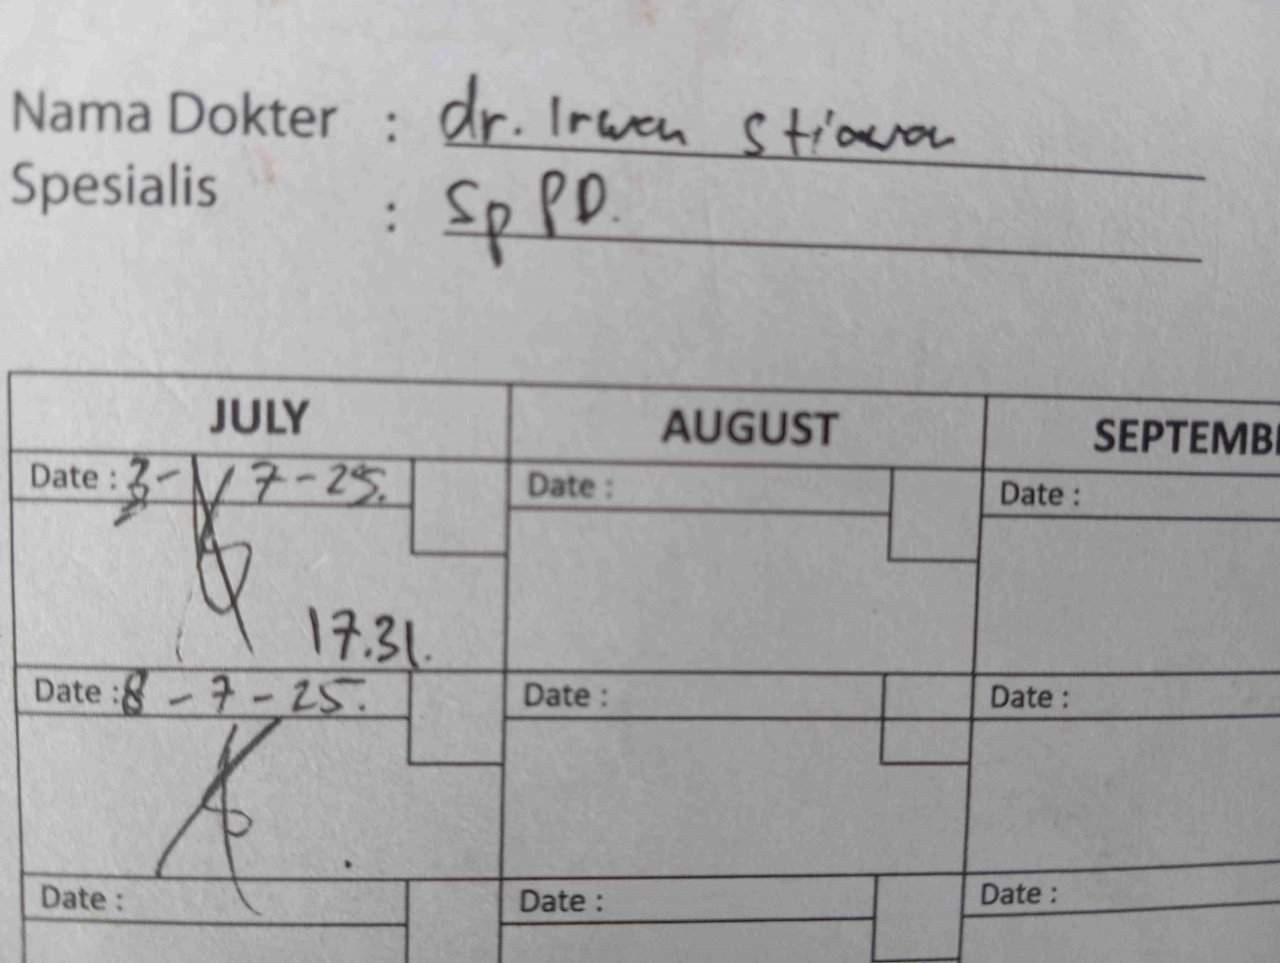 Nama Dokter : dr. Irwan Stiawan
Spesialis : Sp PD.
JULY AUGUST SEPTEMBE
Date : 3- 7-25. Date : Date :
17.31.
Date : 8 - 7 - 25. Date : Date :
Date : Date : Date :